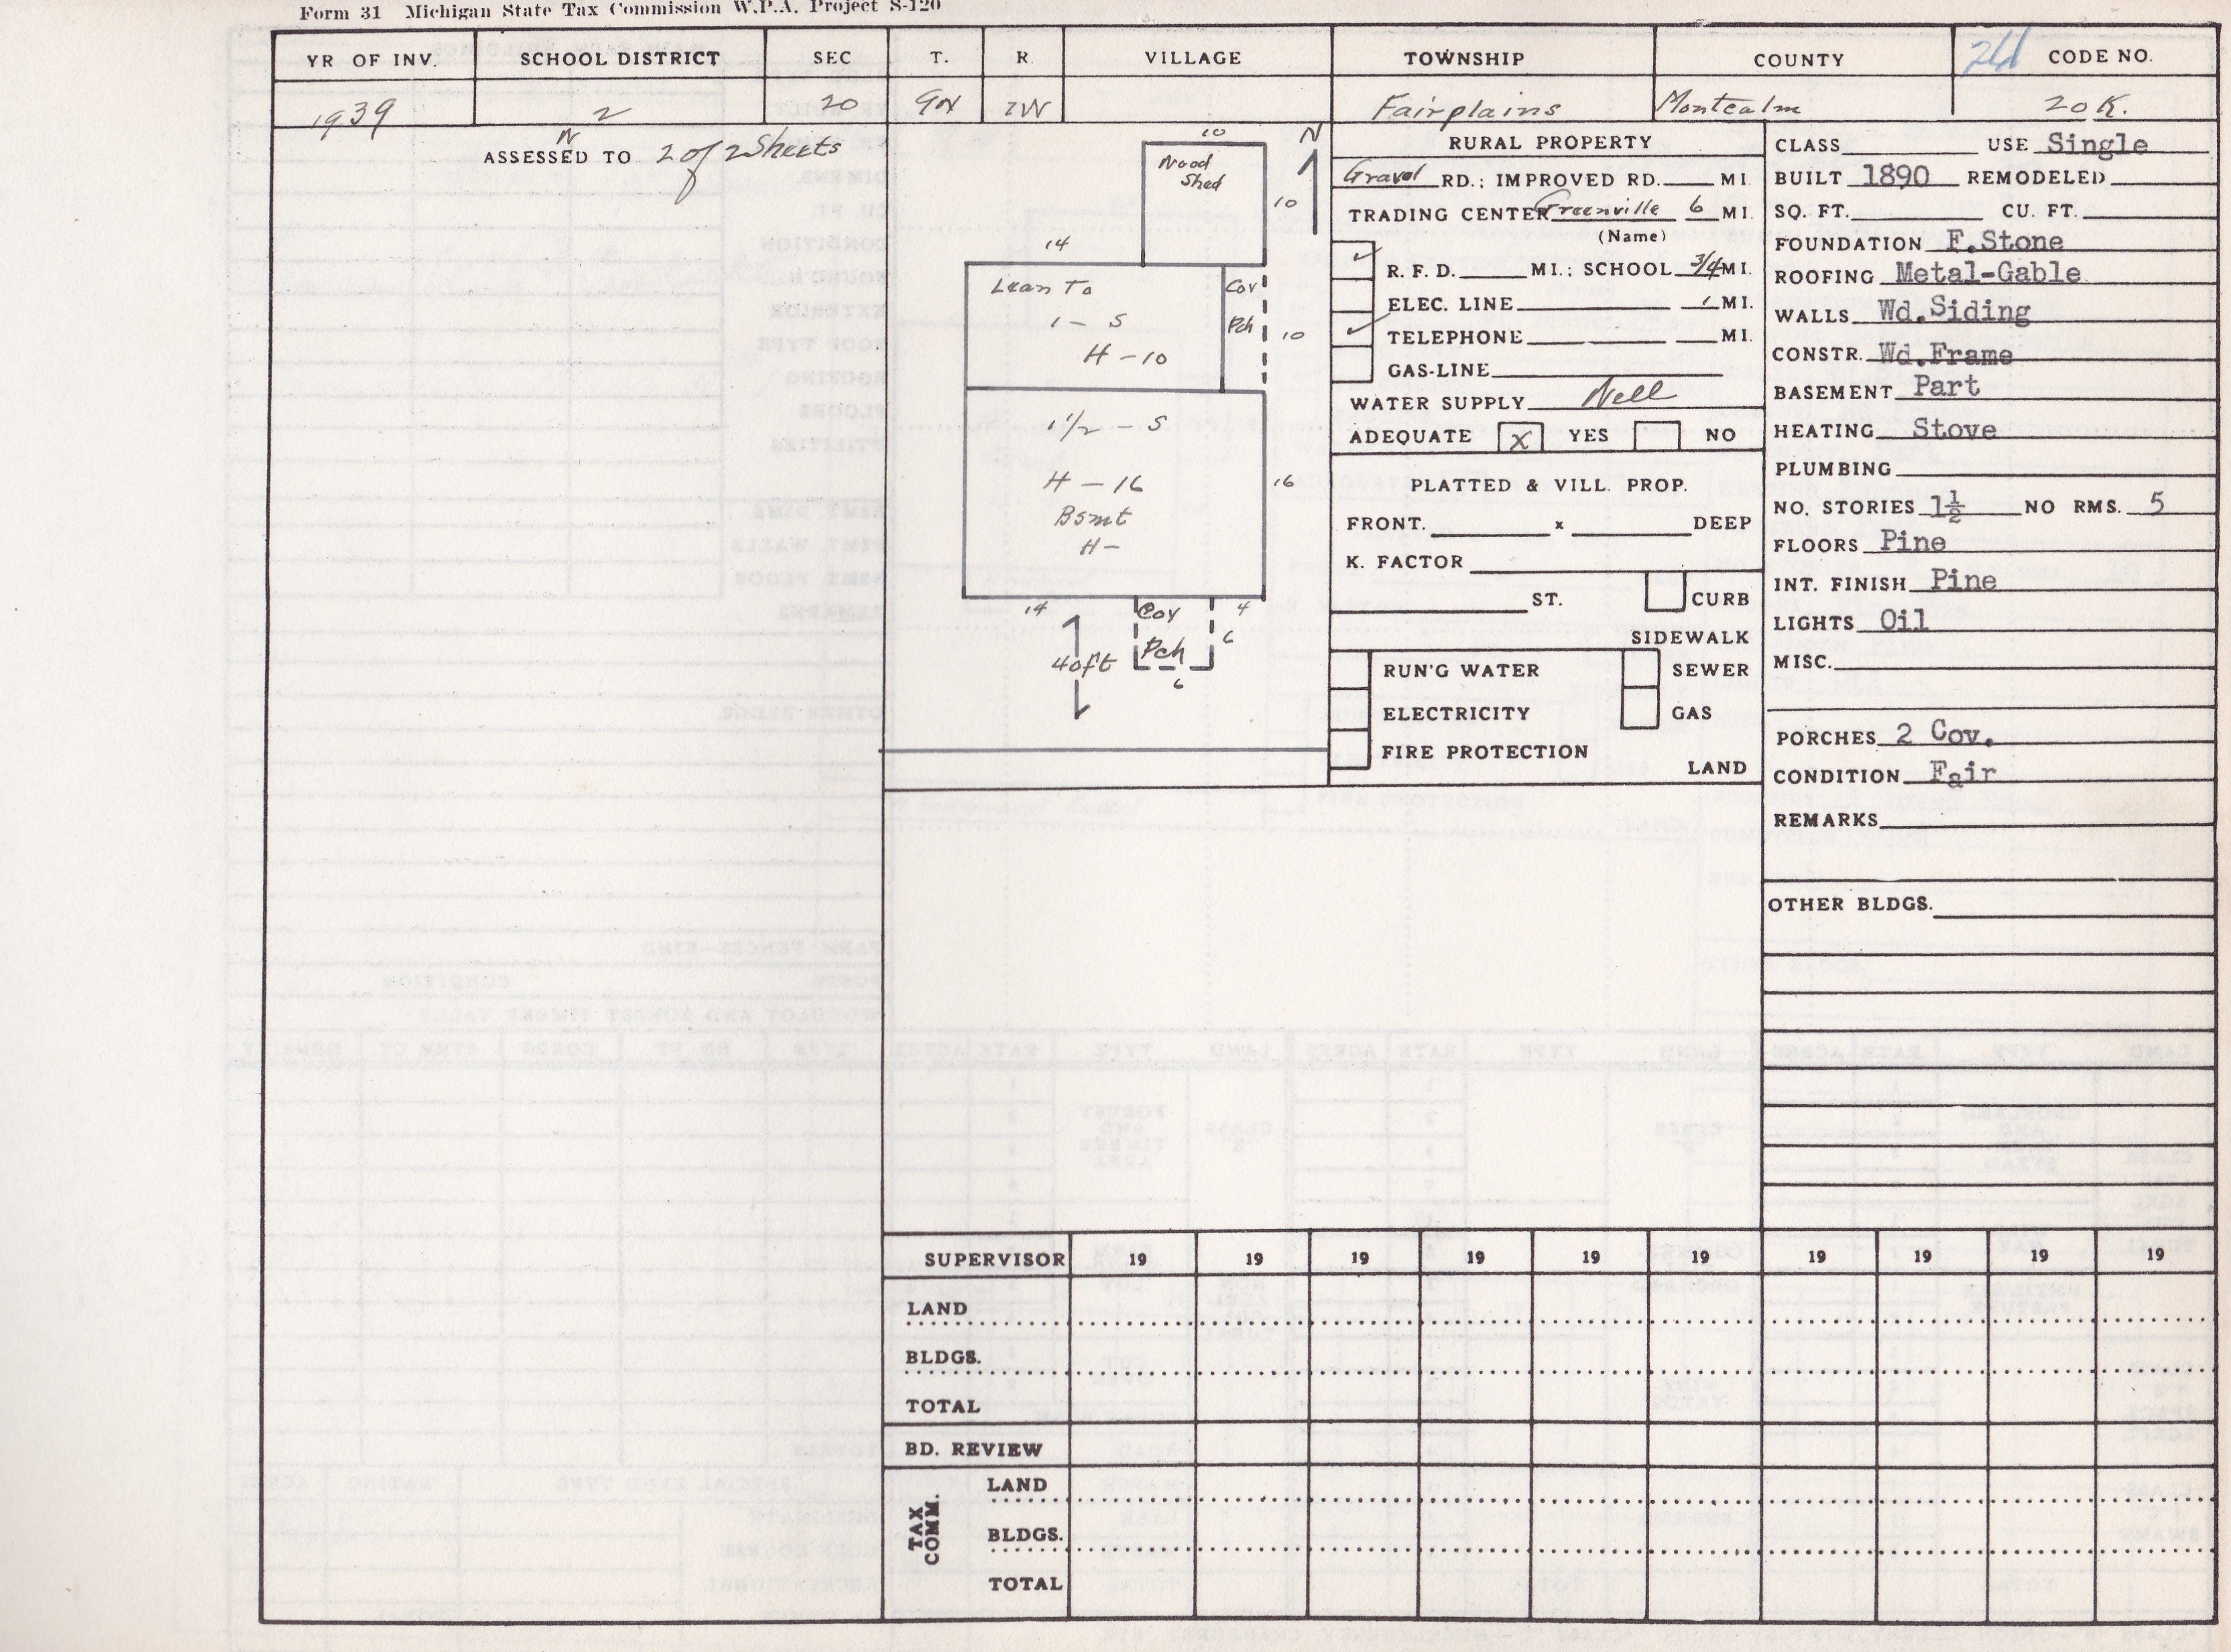 Form 31 Michigan State Tax Commission W.P.A. Project S-120
YR OF INV. SCHOOL DISTRICT SEC T. R. VILLAGE TOWNSHIP COUNTY CODE NO.
1939 2 20 9N 7W Fairplains Montcalm 20 K.
ASSESSED TO 2 of 2 Sheets
N
10
Wood
Shed
10
14
Lean To
1 - S
H - 10
Cov
Pch
10
1 1/2 - S
H - 16
Bsmt
H -
16
14
Cov
Pch
4
6
6
40ft
RURAL PROPERTY
Gravel RD.; IMPROVED RD. MI.
TRADING CENTER Greenville 6 MI.
(Name)
✓ R. F. D. MI.; SCHOOL 3/4 MI.
ELEC. LINE 1 MI.
✓ TELEPHONE MI.
GAS-LINE
WATER SUPPLY Well
ADEQUATE X YES NO
PLATTED & VILL. PROP.
FRONT. x DEEP
K. FACTOR
ST. CURB
SIDEWALK
RUN'G WATER SEWER
ELECTRICITY GAS
FIRE PROTECTION
LAND
CLASS USE Single
BUILT 1890 REMODELED
SQ. FT. CU. FT.
FOUNDATION F.Stone
ROOFING Metal-Gable
WALLS Wd.Siding
CONSTR. Wd.Frame
BASEMENT Part
HEATING Stove
PLUMBING
NO. STORIES 1½ NO RMS. 5
FLOORS Pine
INT. FINISH Pine
LIGHTS Oil
MISC.
PORCHES 2 Cov.
CONDITION Fair
REMARKS
OTHER BLDGS.
SUPERVISOR 19 19 19 19 19 19 19 19 19 19
LAND
BLDGS.
TOTAL
BD. REVIEW
TAX COMM.
LAND
BLDGS.
TOTAL